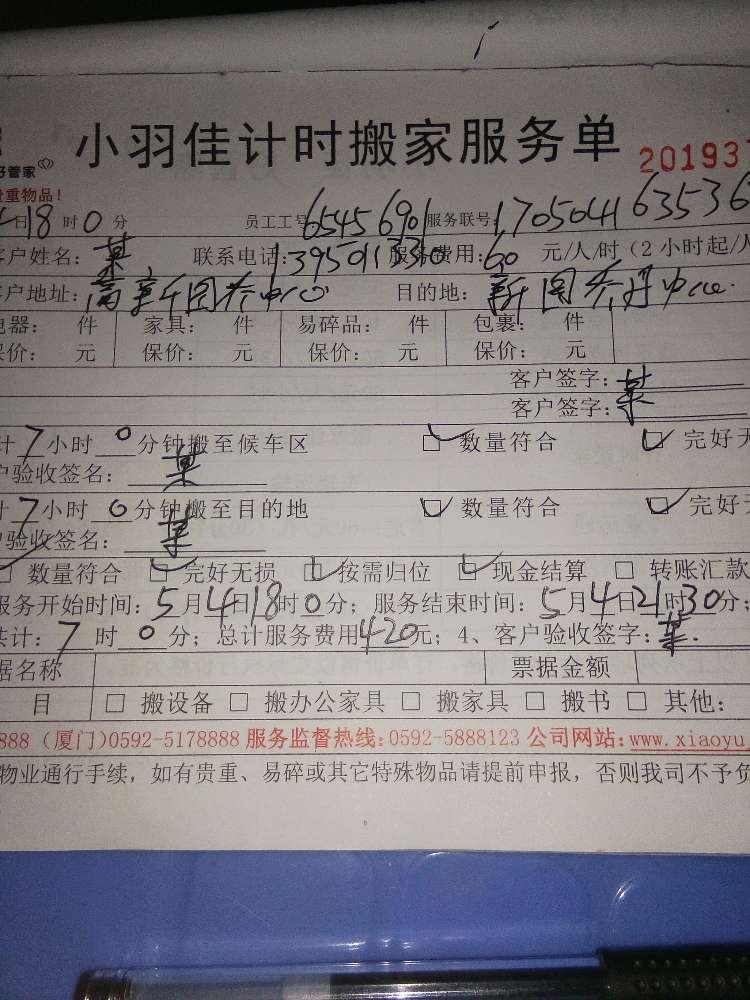 小羽佳计时搬家服务单 201937
好管家
贵重物品!
日18时0分 员工工号:65456901 服务联号:170504163536
客户姓名:某 联系电话:13950113310 服务费用:60 元/人/时(2小时起/人
客户地址:高新图书中心 目的地:新图
电器: 件 家具: 件 易碎品: 件 包裹: 件
保价: 元 保价: 元 保价: 元 保价: 元
客户签字:某
客户签字:
计7小时0分钟搬至候车区 数量符合 完好无
户验收签名:某
计7小时0分钟搬至目的地 数量符合 完好无
户验收签名:某
数量符合 完好无损 按需归位 现金结算 转账汇款
服务开始时间:5月4日18时0分;服务结束时间:5月4日21时30分;
共计:7时0分;总计服务费用420元;4、客户验收签字:某.
据名称 票据金额
目 搬设备 搬办公家具 搬家具 搬书 其他:
888(厦门)0592-5178888 服务监督热线:0592-5888123 公司网站:www.xiaoyu
物业通行手续,如有贵重、易碎或其它特殊物品请提前申报,否则我司不予负